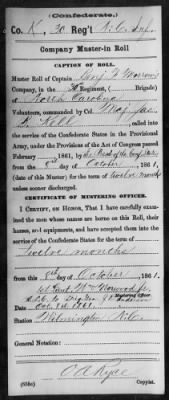 (Confederate.)
Co. K, 30 Reg't N.C. Inf.
Company Muster-in Roll
CAPTION OF ROLL.
Muster Roll of Captain
Company, in the 30 Regiment, ( Brigade)
of North Carolina
Volunteers, commanded by Col.
called into
the service of the Confederate States in the Provisional
Army, under the Provisions of the Act of Congress passed
February , 1861, by
from the 8th day of October , 1861
(date of this Muster) for the term of twelve months
unless sooner discharged.
CERTIFICATE OF MUSTERING OFFICER.
I CERTIFY, ON HONOR, That I have carefully
examined the men whose names are borne on this Roll, their
horses, and equipments, and have accepted them into the
service of the Confederate States for the term of
twelve months
from this 8th day of October , 1861.
Mustering Officer
Oct. 1861.
Station Wilmington N.C.
Copyist.